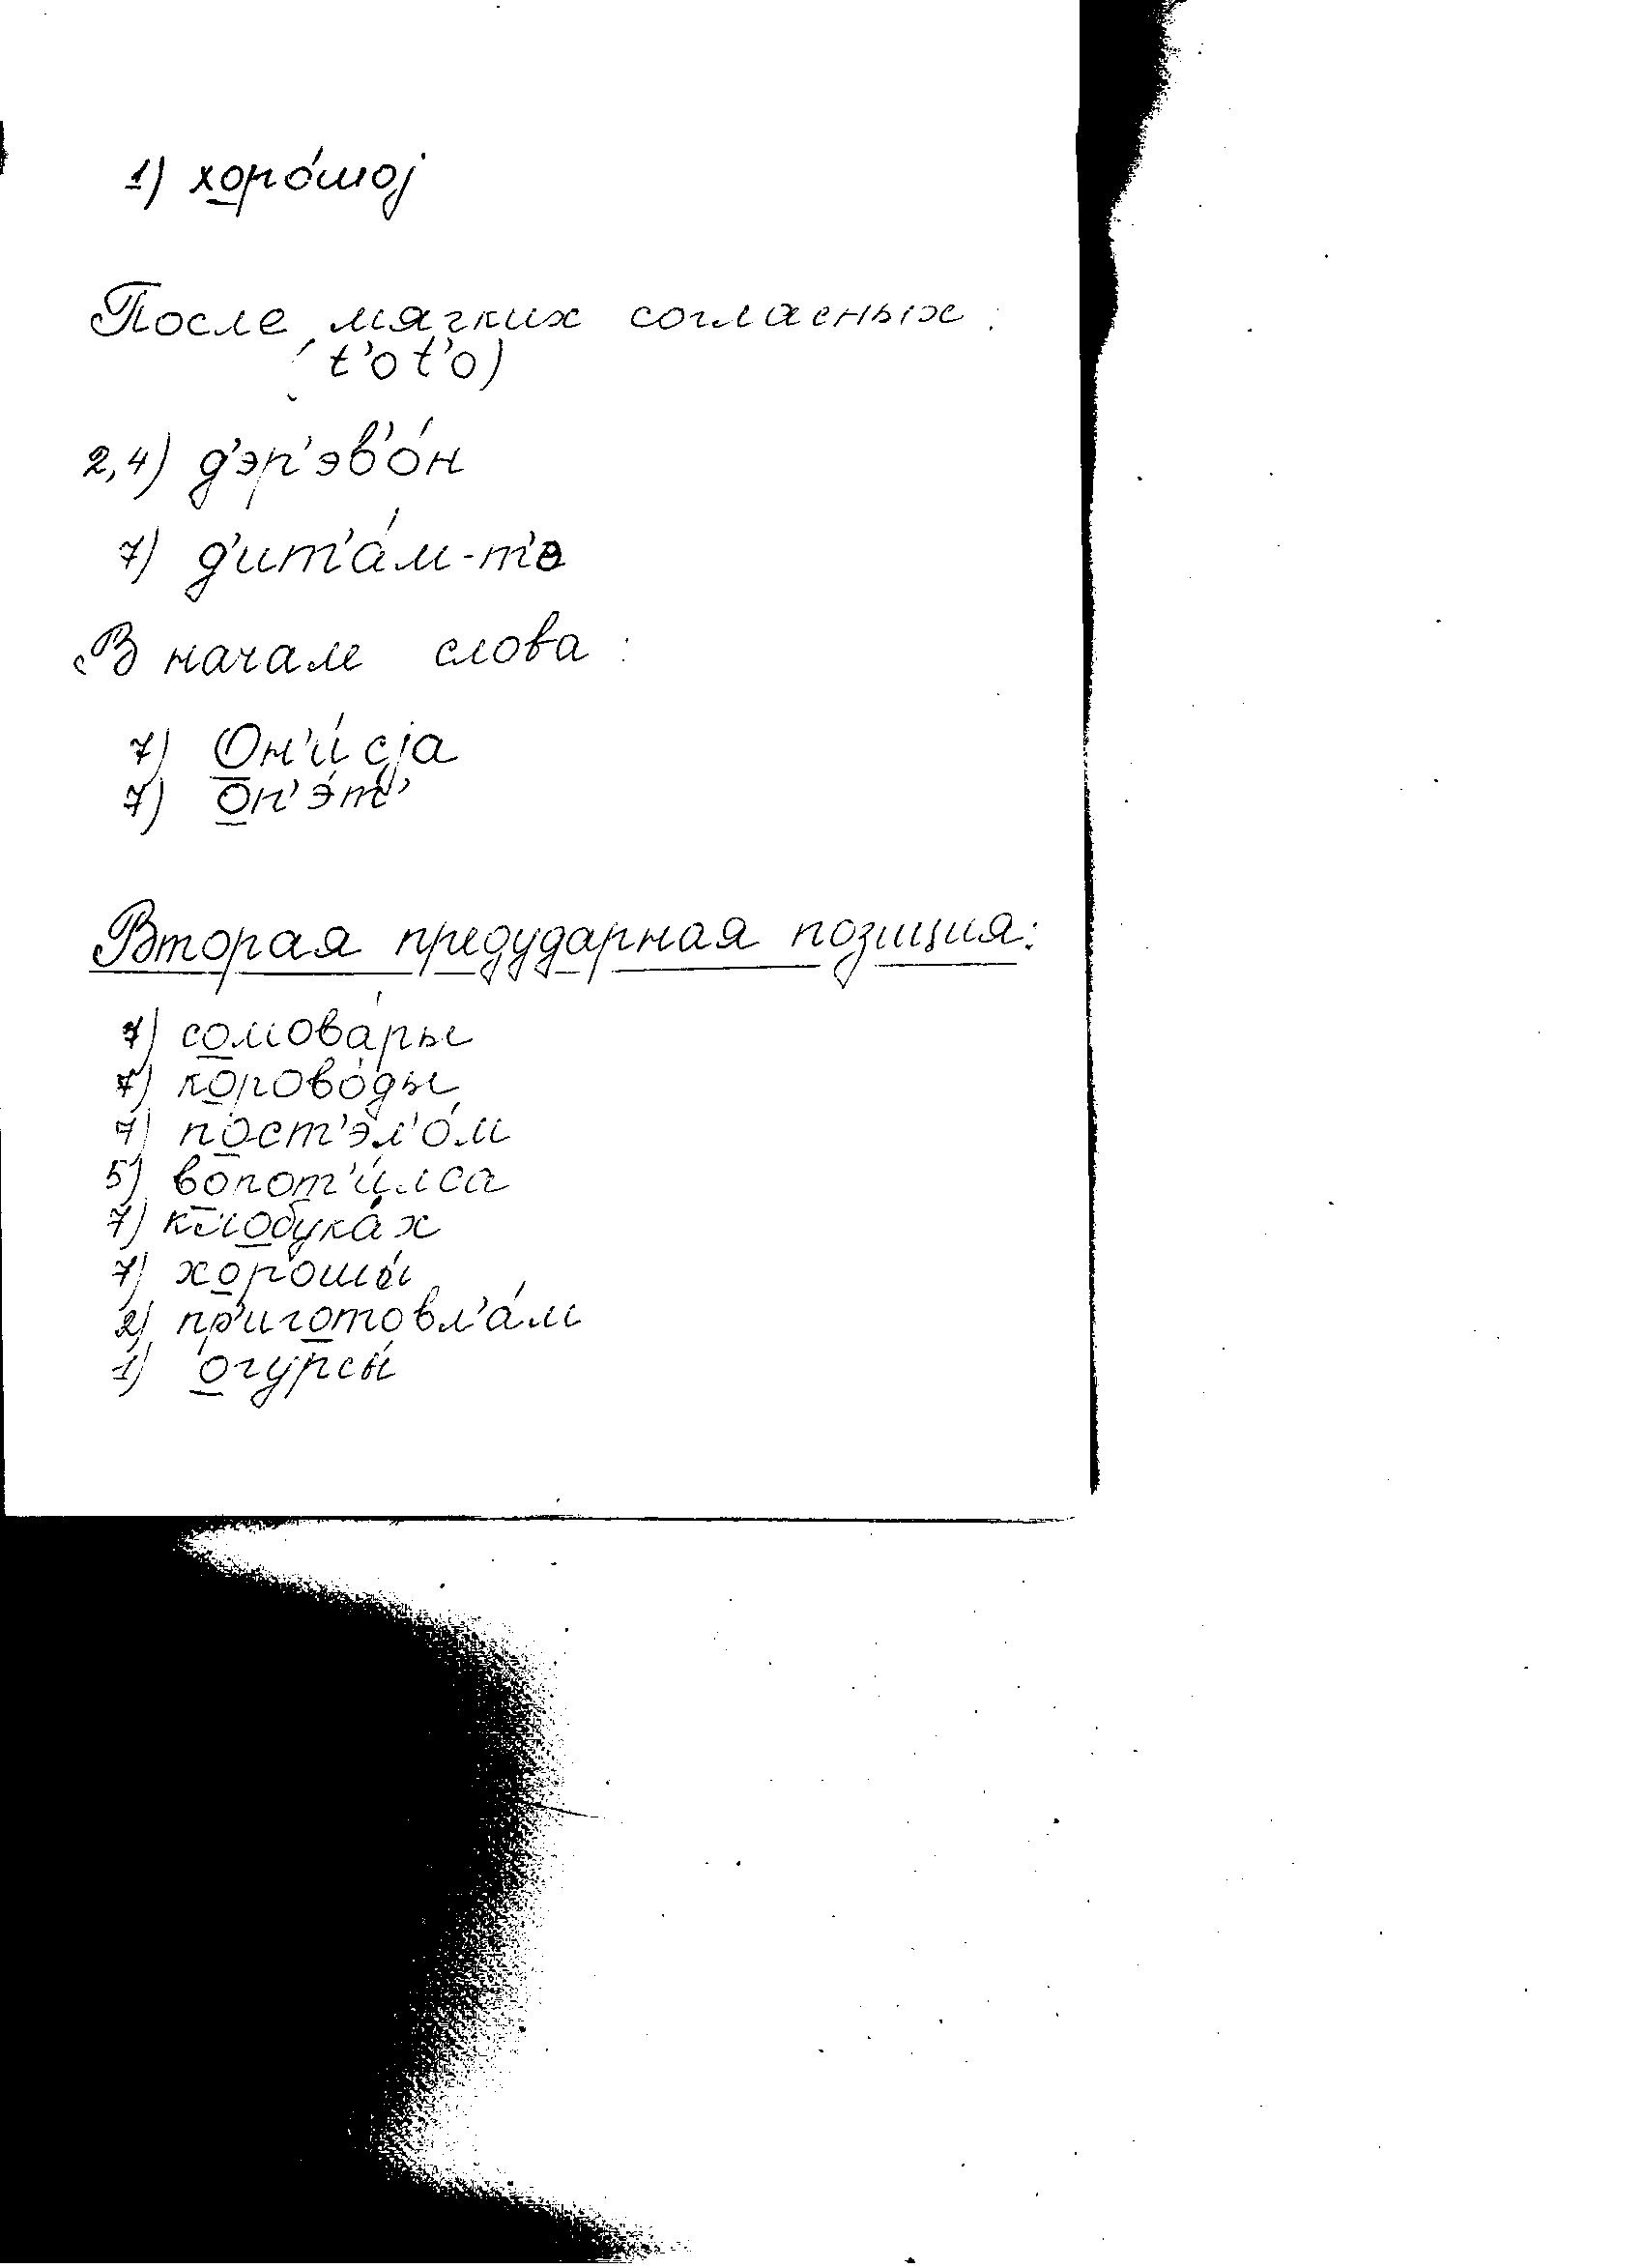 1) хоро́шој
После мягких согласных:
(t'o t'o)
2,4) д'эр'эв'о́н
7) д'ит'а́м-т'о
В начале слова:
7) Он'и́сја
7) оп'э́т'
Вторая предударная позиция:
7) сомова́ры
7) корово́ды
7) пост'эл'о́м
5) вопот'и́лса
7) клобука́х
7) хорошы́
2) пр'иготовл'а́м
1) огурсы́